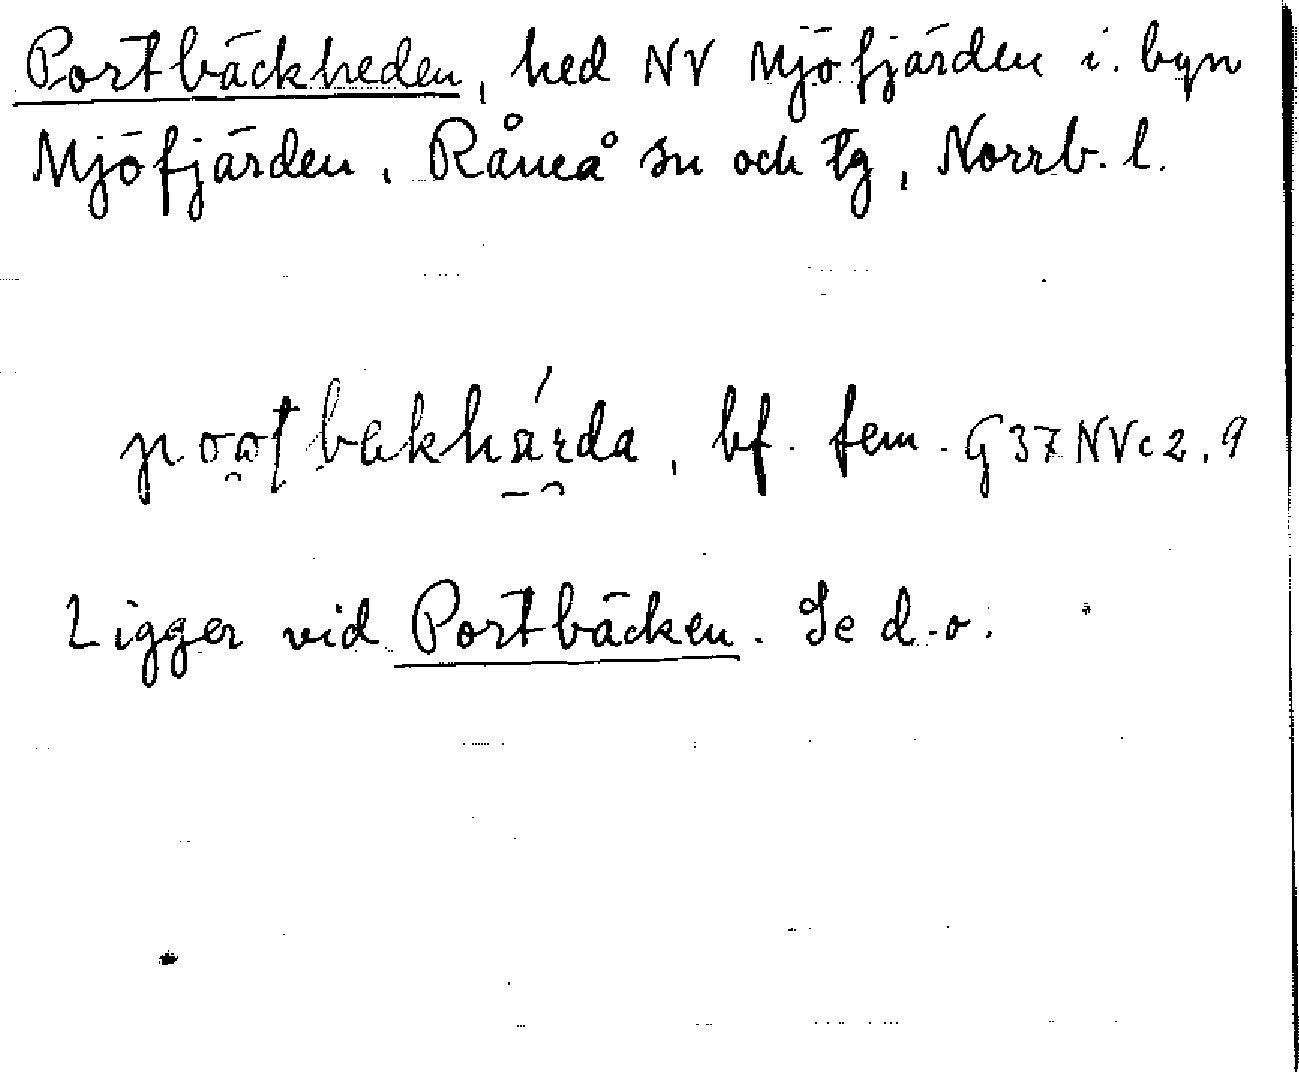 Portbäckheden, hed NV Mjöfjärden i. byn
Mjöfjärden, Råneå sn och tg, Norrb. l.
bf. fem. G37NVc2.9
Ligger vid Portbäcken. Se d.o.